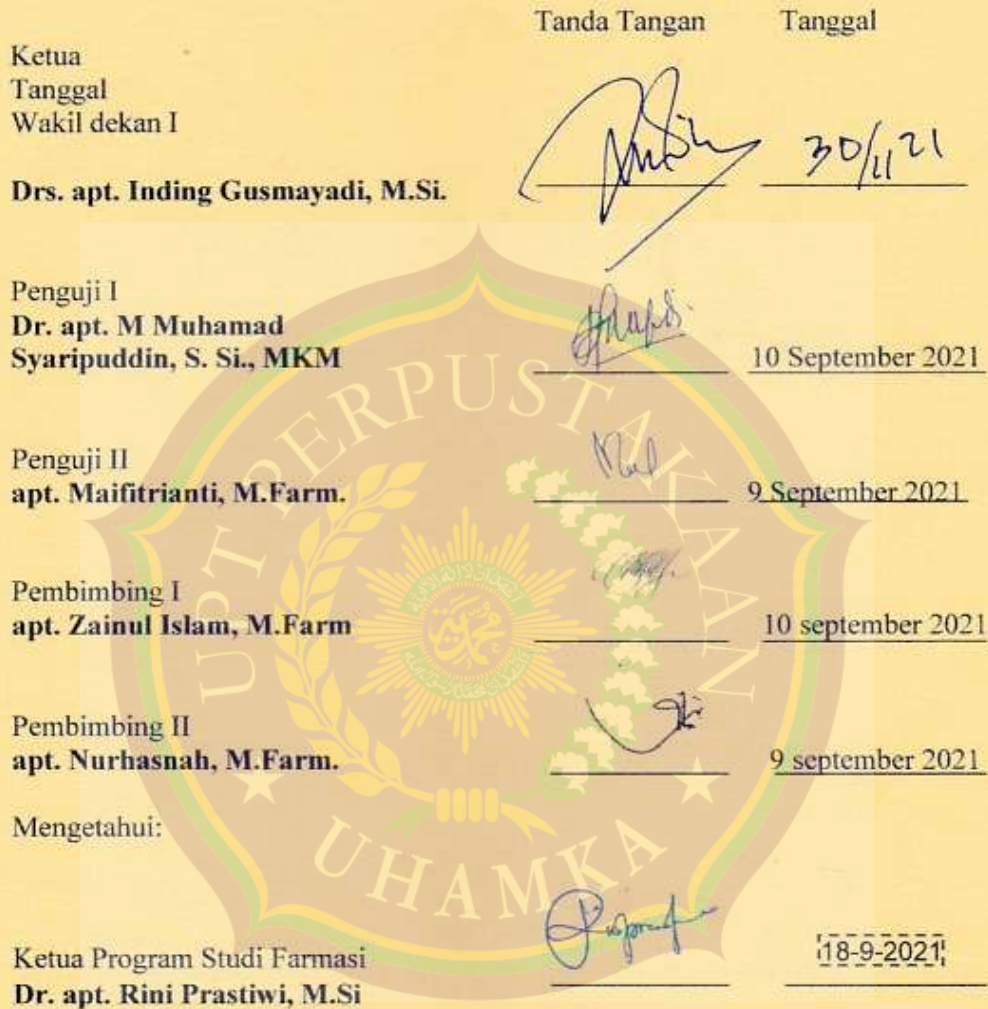 Tanda Tangan Tanggal
Ketua
Tanggal
Wakil dekan I
Drs. apt. Inding Gusmayadi, M.Si.
30/11 21
Penguji I
Dr. apt. M Muhamad
Syaripuddin, S. Si., MKM
10 September 2021
Penguji II
apt. Maifitrianti, M.Farm.
9 September 2021
Pembimbing I
apt. Zainul Islam, M.Farm
10 september 2021
Pembimbing II
apt. Nurhasnah, M.Farm.
9 september 2021
Mengetahui:
Ketua Program Studi Farmasi
Dr. apt. Rini Prastiwi, M.Si
18-9-2021
UPT PERPUSTAKAAN
UHAMKA